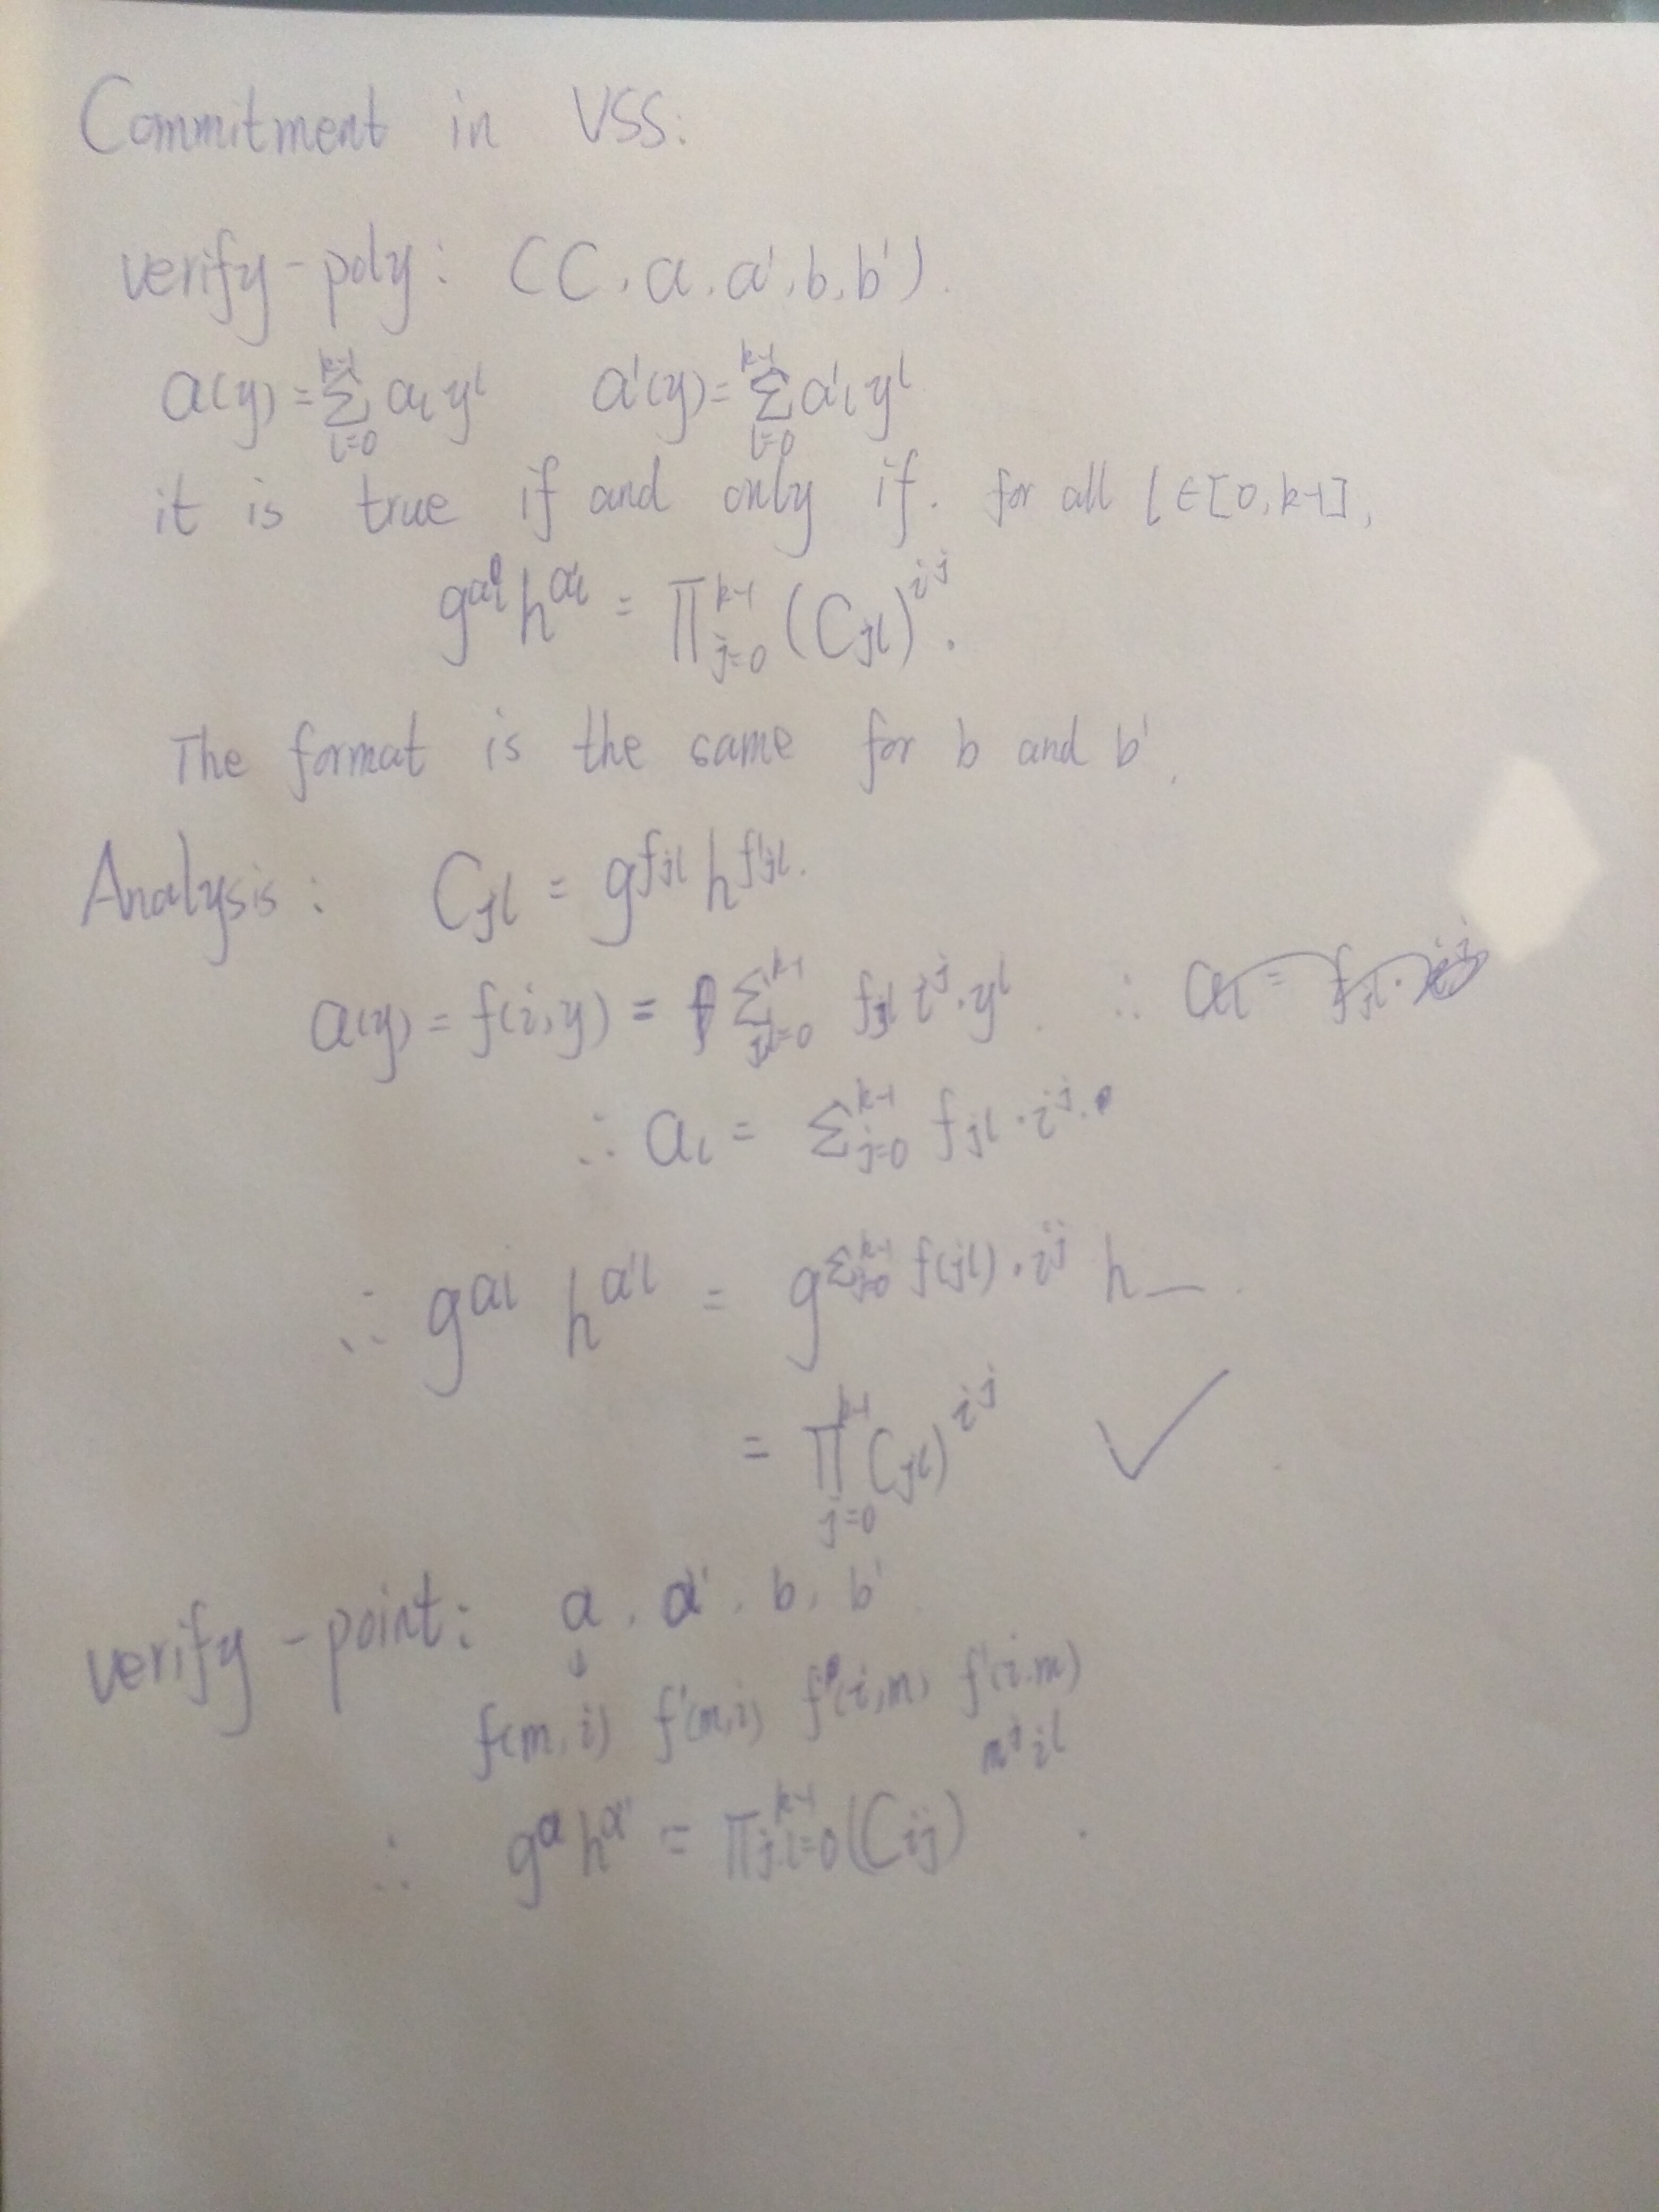 Commitment in VSS:
verify-poly: (C, a, a', b, b').
a(y) = Σ_{l=0}^{k-1} a_l y^l    a'(y) = Σ_{l=0}^{k-1} a'_l y^l
it is true if and only if. for all l∈[0,k-1],
g^{a_l} h^{a'_l} = ∏_{j=0}^{k-1} (C_{jl})^{i^j}.
The format is the same for b and b'.
Analysis: C_{jl} = g^{f_{jl}} h^{f'_{jl}}.
a(y) = f(i,y) = Σ_{j,l=0}^{k-1} f_{jl} i^j·y^l. ∴
∴ a_l = Σ_{j=0}^{k-1} f_{jl}·i^j.
∴ g^{a_l} h^{a'_l} = g^{Σ_{j=0}^{k-1} f(jl)·i^j} h—.
= ∏_{j=0}^{k-1} C_{jl})^{i^j} ✓
verify-point: a, a', b, b'.
↓
f(m,i) f'(m,i) f(i,m) f'(i.m)
∴ g^a h^{a'} = ∏_{j,l=0}^{k-1} (C_{ij})^{m^j i^l}.